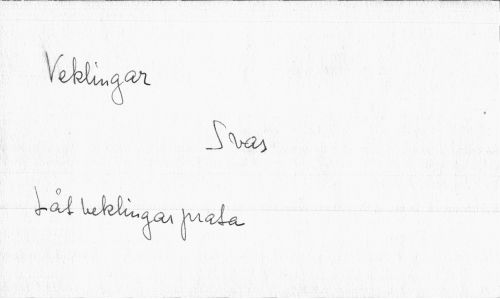 Veklingar
Svas
Låt veklingar prata